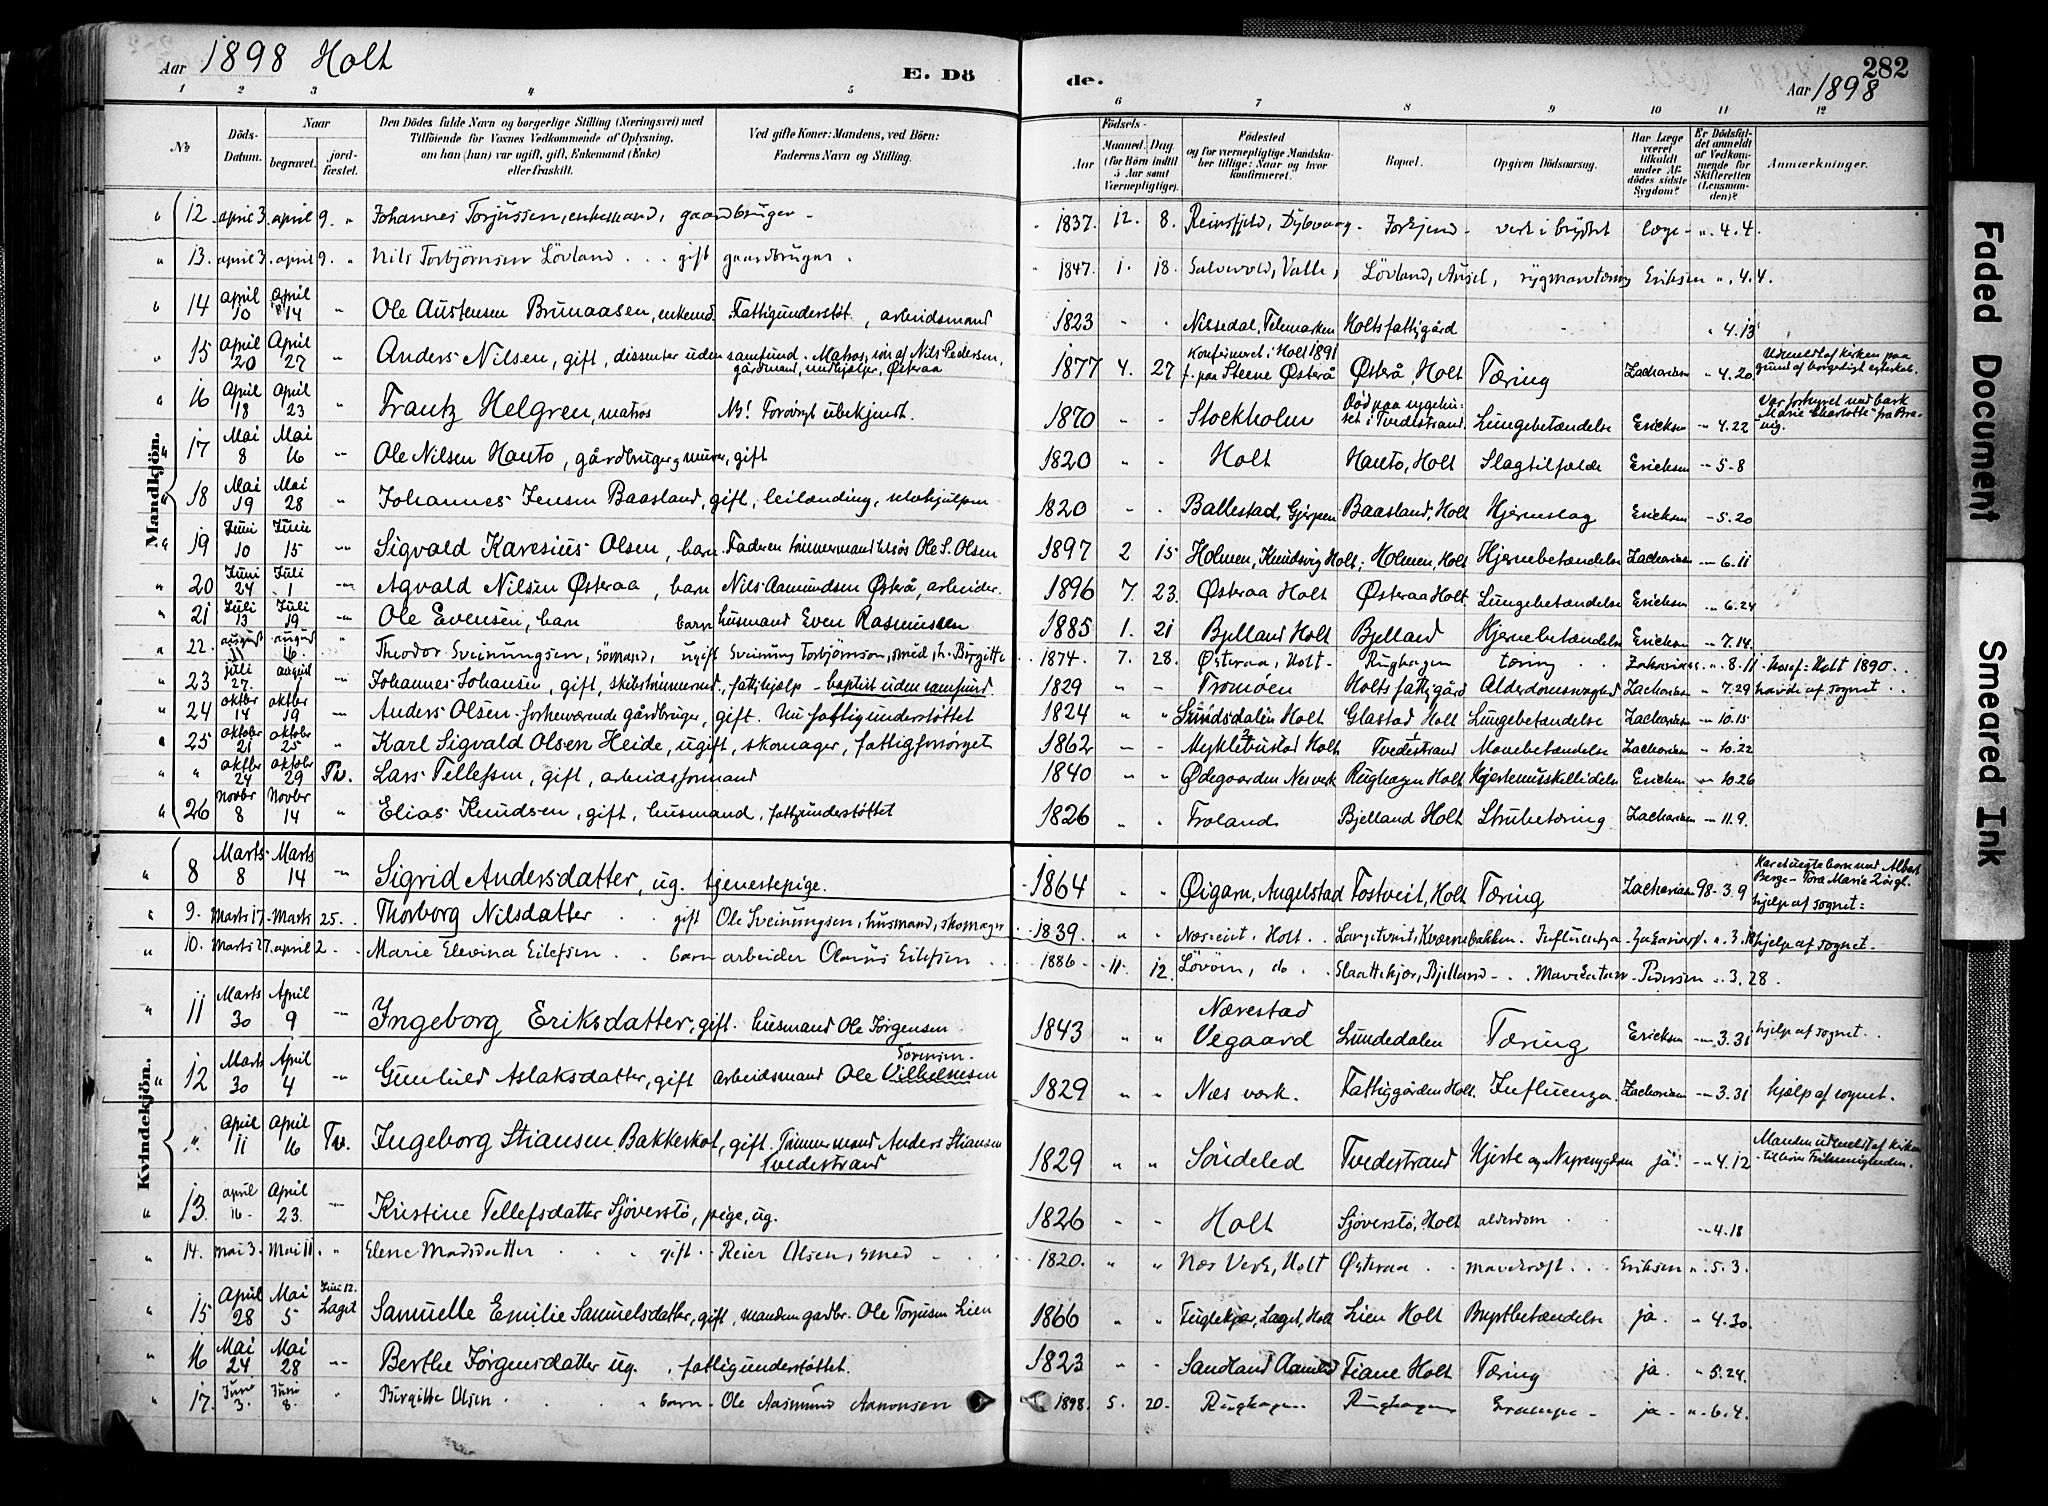 Aar 1898 Holt
E. Döde.
282
Aar 1898
1 2 3 4 5 6 7 8 9 10 11 12
№
Döds-Datum.
Naar
begravet.
jordfæstet.
Den Dödes fulde Navn og borgerlige Stilling (Næringsvei) med
Tilföiende for Voxnes Vedkommende af Oplysning,
om han (hun) var ugift, gift, Enkemand (Enke)
eller fraskilt.
Ved gifte Koner: Mandens, ved Börn:
Faderens Navn og Stilling.
Födsels-
Aar
Maaned. Dag.
(for Börn indtil
5 Aar samt
Værnepligtige).
Födested
og for værnepligtige Mandskaber tillige: Naar og hvor
konfirmeret.
Bopæl.
Opgiven Dödsaarsag.
Har Læge været tilkaldt under Afdödes sidste Sygdom?
Er Dödsfaldet anmeldt af Vedkommende for Skifteretten (Lensmanden)?
Anmærkninger.
Mandkjön.
12. april 3. april 9. " Johannes Torjussen, enkemand, gaardbruger - 1837. 12. 8. Dybvaag - læge - " 4.4.
13. april 3. april 9. " Nils Torbjörnsen Lövland . . . gift gaardbruger . 1847. 1. 18. Valle, Lövland, Eriksen " . 4.4.
14 April 10 April 14 " Ole Austensen Brunaasen, enkemd. Fattigunderstöt., arbeidsmand 1823 " " Nissedal, Telemarken Holts fattigård " 4.13
15 April 20 April 27 " Anders Nilsen, gift, dissenter uden samfund. Matros, sön af Nils Pedersen, gårdmand, Østeraa 1877 4. 27 Konfirmeret i Holt 1891 f. paa Steene Østerå Østerå, Holt Tæring Zachariasen " 4.20 Udmeldt af kirken paa grund af borgerligt egteskab.
16 April 18 April 23 " Frantz Helgren, matros NB! Forövrigt ubekjendt. 1870 " " Stockholm Död paa sygehuset i Tvedestrand. Lungebetændelse Ericksen " 4.22 Var forhyret med bark "Marie Charlotte" fra
17 Mai 8 Mai 16 " Ole Nilsen Hauto, gårdbruger, gift 1820 " " Holt Hauto, Holt Slagtilfælde Ericksen " 5-8
18 Mai 19 Mai 28 " Johannes Jensen Baasland, gift, leilænding, selvhjulpen 1820 " " Ballestad, Gjerpen Baasland, Holt Hjerneslag Ericksen " 5.20
19 Juni 10 Juni 15 " Sigvald Karesius Olsen, barn Faderen Ole S. Olsen 1897 2 15 Holmen, Holt, Holmen, Holt Hjernebetændelse Zachariasen " 6.11
20 Juni 24 Juli 1 " Agvald Nilsen Østeraa, barn Nils Aamundsen Østerå, arbeider. 1896 7. 23. Østeraa Holt Østeraa Holt. Lungebetændelse Ericksen " 6.24
21 Juli 13 Juli 19 " Ole Evensen, barn barn husmand Even Rasmussen 1885 1. 21 Bjelland Holt Bjelland Hjernebetændelse Ericksen " 7.14
22. august 11 august 16. " Theodor Sveinungsen, sömand, ugift Sveinung Torbjörnsen, smed, h. Birgitte 1874. 7. 28. Østeraa, Holt - Rughagen tæring . . " 8.11 konf. Holt 1890 . .
23 juli 27. august 1 " Johannes Johansen, gift, fattighjælp - baptist uden samfund. 1829 " " Tromöen Holts fattigård Alderdomssvaghed Zachariasen " 7.29 af sognet . .
24 oktbr 14 oktbr 19 " Anders Olsen - forhenværende gårdbruger, gift. Nu fattigunderstöttet 1824 " " Lundsdalen Holt Glastad Holt Lungebetændelse Zachariasen " 10.15
25 oktober 21 oktobr 25 " Karl Sigvald Olsen Heide, ugift, skomager, fattigforsörget 1862 " " Myklebustad Holt Tvedestrand Mavebetændelse Zachariasen " 10.22
" oktbr 24 oktober 29 Tv. Lars Tellefsen, gift, arbeidsformand 1840 " " Ødegaarden Nesverk Rughagen Holt Ericksen " 10.26
26 Novbr 8 Novbr 14 " Elias Knudsen, gift, husmand, fattigunderstöttet 1826 " " Froland Bjelland Holt Strubetæring Zachariasen " 11.9.
Kvindekjön.
8 Marts 8 Marts 14 " Sigrid Andersdatter, ug. tjenestepige. 1864 " " Øigarn, Angelstad Fostveit, Holt Tæring Zachariasen 98-3.9 Har et uegte barn med Albert Berge - Tora Marie hjelp af sognet:
9. Marts 17. Marts 25. " Thorborg Nilsdatter . . gift Ole Sveinungsen, husmand, skomager 1839. " " Holt . Kværnebakken. Influentza hjelp af sognet.
10. Marts 27. april 2. " Marie Elevina Eilefsen . . barn arbeider Olaus Eilefsen 1886 11. 12. Lövöen, do . Bjelland - Pedersen " 3.28.
11 Marts 30 April 9 " Ingeborg Eriksdatter, gift. husmand Ole Jörgensen 1843 " " Nærestad Vegaard Lundedalen Tæring Ericksen " 3.31 hjelp af sognet.
12 Marts 30 April 4 " Gunhild Aslaksdatter, gift arbeidsmand Ole Vilhelmsen Sörensen. 1829 " " Næs værk. Fattiggården Holt. Influenza. Zachariasen " 3.31 hjælp af sognet.
" April 11 April 16 Tv. Ingeborg Stiansen Bakkeskot, gift. Tömmermand Anders Stiansen Tvedestrand 1829 " " Söndeled Tvedestrand Hjerte og Nyresygdom ja " 4.12 Manden udmeldt af kirken
13. april 16. April 23. " Kristine Tellefsdatter Sjöverstö, pige, ug. 1826 " " Holt Sjöverstö, Holt alderdom . " 4.18
14. mai 3. Mai 11. " Elene Madsdatter . . gift . Reier Olsen, smed . 1820. " " Næs Verk, Holt Østeraa . . mavekræft . . Eriksen " 5.3.
15 April 28 Mai 5 Juni 12. Laget Samuelle Emilie Samuelsdatter, gift, manden gardbr. Ole Torjusen Lien 1866 " " Fuglekjær, Laget, Holt Lien Holt Brystbetændelse ja. " 4.30.
16 Mai 24 Mai 28 " Berthe Jörgensdatter ug. , fattigunderstöttet. 1823 " " Sandland Aamlid Fiane Holt Tæring ja. " 5.24.
17. Juni 3. Juni 8. " Birgitte Olsen . . . " barn - Ole Aasmund Aanonsen 1898. 5. 20. Rughagen Rughagen Krampe - ja - " 6.4.
Faded Document
Smeared Ink